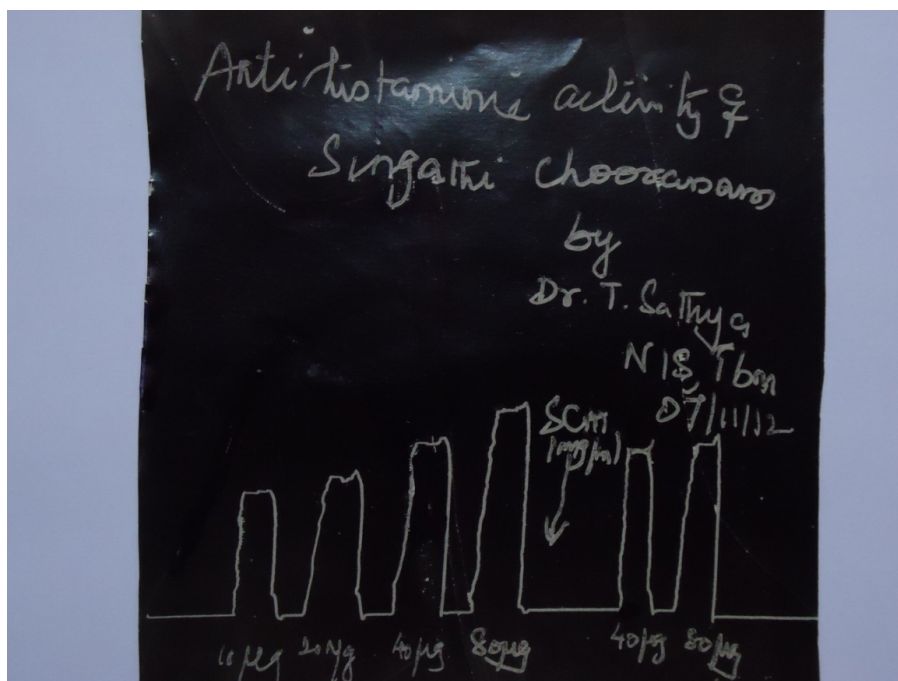 Antihistaminic activity of
Singathi Chooranam
by
Dr. T. Sathya
NIS, Tbm
07/11/12
SCM
(mg/ml)
10 µg 20 µg 40 µg 80µg 40µg 80µg